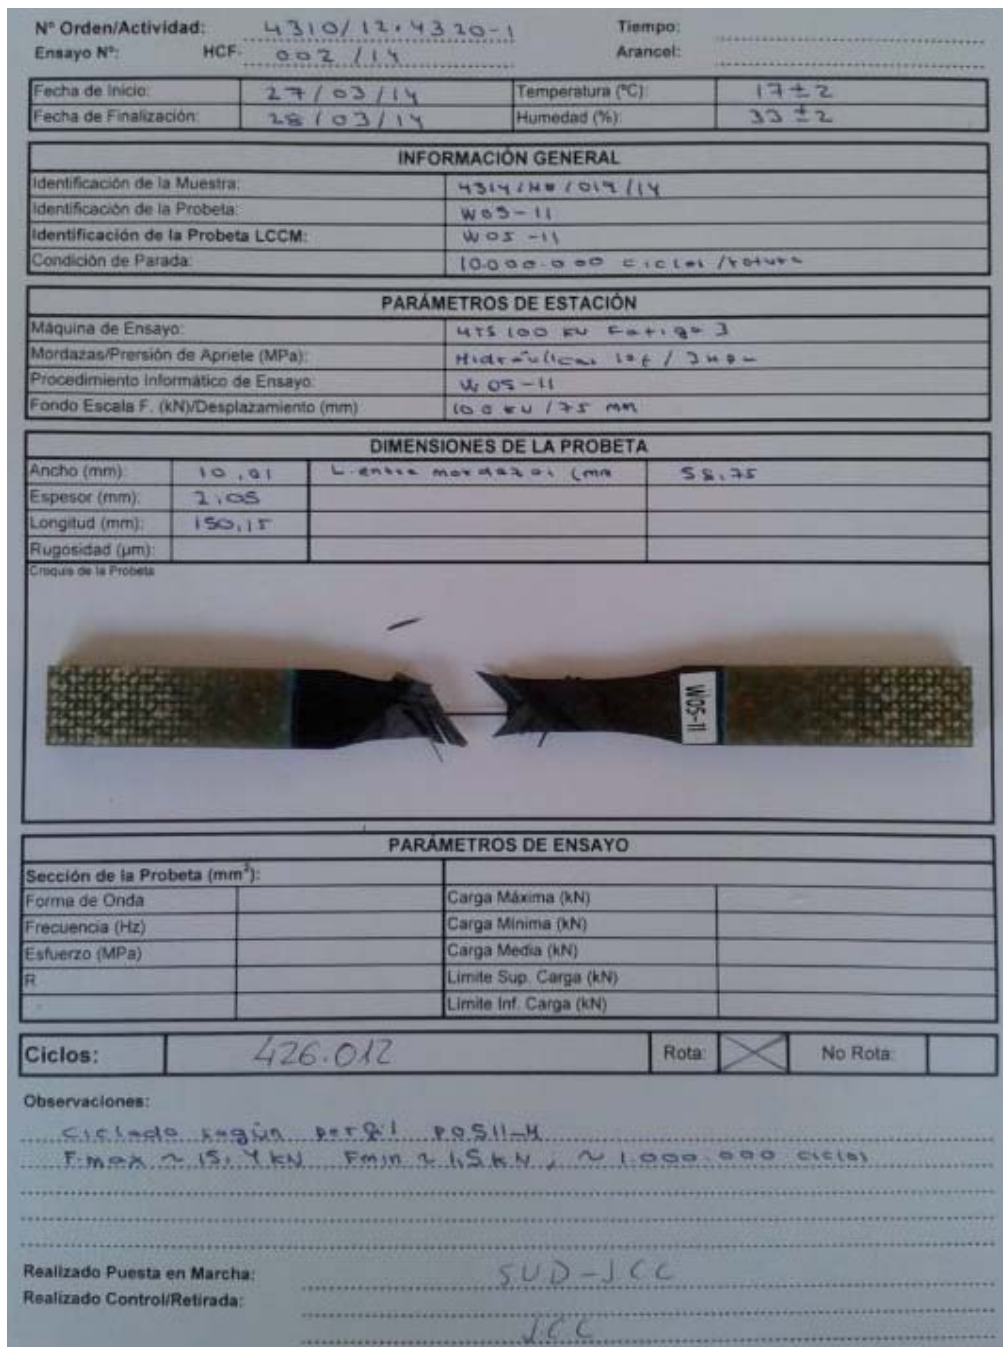 Nº Orden/Actividad: 4310/12.4320-1 Tiempo:
Ensayo Nº: HCF- 002 /14 Arancel:
Fecha de Inicio: 27/03/14 Temperatura (ºC): 17±2
Fecha de Finalización: 28/03/14 Humedad (%): 33±2
INFORMACIÓN GENERAL
Identificación de la Muestra: /019/14
Identificación de la Probeta: W05-11
Identificación de la Probeta LCCM: W05-11
Condición de Parada: 10.000.000 ciclos/rotura
PARÁMETROS DE ESTACIÓN
Máquina de Ensayo: MTS 100 kN Fatiga 3
Mordazas/Prersión de Apriete (MPa): Hidráulicas
Procedimiento Informático de Ensayo: W05-11
Fondo Escala F. (kN)/Desplazamiento (mm) 100 kN/75 mm
DIMENSIONES DE LA PROBETA
Ancho (mm): 10,01 L. entre mordazas (mm 58,75
Espesor (mm): 2,05
Longitud (mm): 150,15
Rugosidad (µm):
Croquis de la Probeta
W05-11
PARÁMETROS DE ENSAYO
Sección de la Probeta (mm²):
Forma de Onda Carga Máxima (kN)
Frecuencia (Hz) Carga Mínima (kN)
Esfuerzo (MPa) Carga Media (kN)
R Limite Sup. Carga (kN)
Limite Inf. Carga (kN)
Ciclos: 426.012 Rota: No Rota:
Observaciones:
Ciclado según perfil POS11-M
F.max ~ 15,4 kN Fmin ~ 1,5 kN, ~ 1.000.000 ciclos
Realizado Puesta en Marcha: SUD-JCC
Realizado Control/Retirada:
JCC